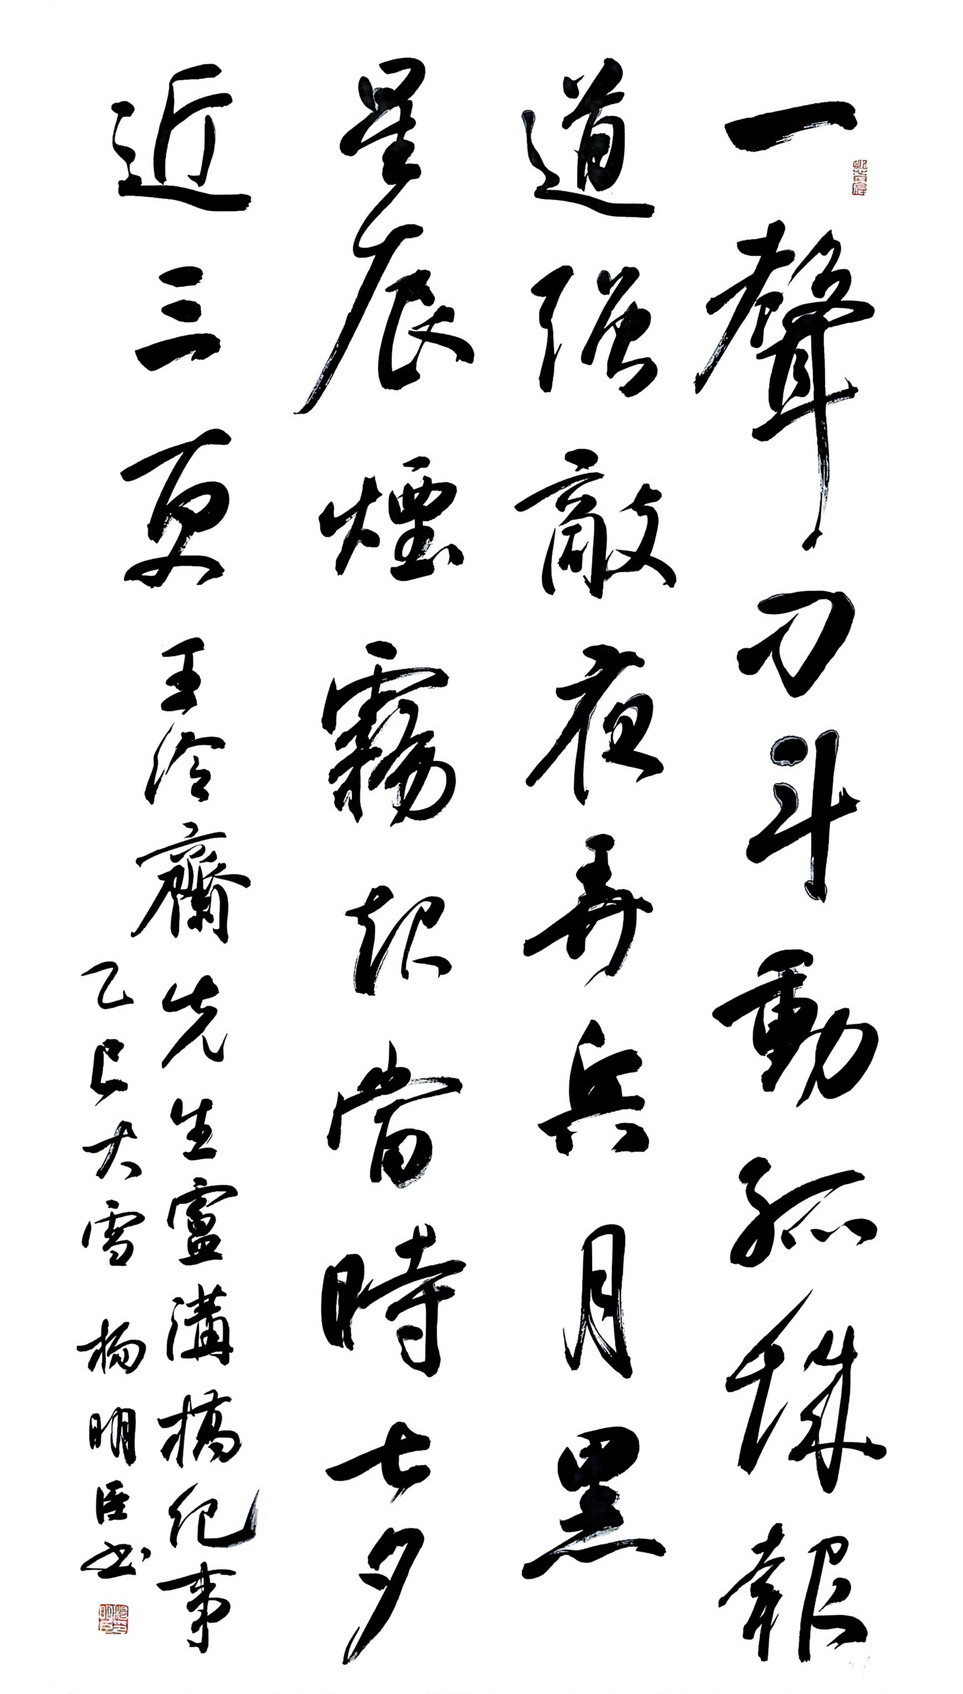 一聲刁斗動孤城報
道强敵夜弄兵月黑
星辰煙霧起當時七夕
近三更 王冷齋先生盧溝橋紀事
乙巳大雪 楊明臣书